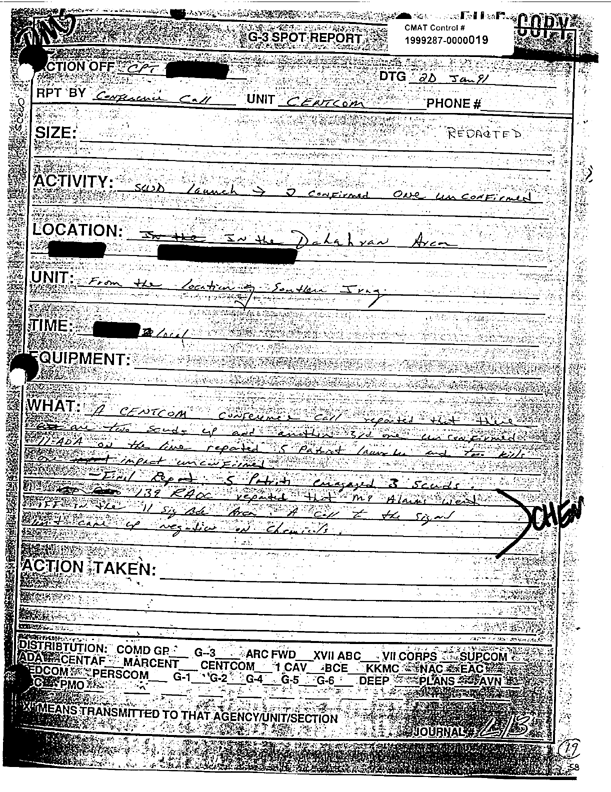 DMS
FILE COPY
G-3 SPOT REPORT
CMAT Control #
1999287-0000019
ACTION OFF CPT
DTG 20 Jan 91
RPT BY Conference Call UNIT CENTCOM PHONE #
SIZE: REDACTED
ACTIVITY: SCUD launch → 2 confirmed one unconfirmed
LOCATION: In the In the Dahahran Area
UNIT: From the location of Southern Iraq
TIME: local
EQUIPMENT:
WHAT: A CENTCOM conference call reported that there
are two scuds up and another 3rd one unconfirmed.
11 ADA on the line reported 5 Patriot launches and two kills
impact unconfirmed.
-Final Report. 5 Patriots engaged 3 Scuds.
139 RAOC reported that M9 Alarm went
off in the 11 Sig Bde Area. A Call to the Signal
came up negative on Chemicals.
CHEM
ACTION TAKEN:
DISTRIBTUTION: COMD GP G-3 ARC FWD XVII ABC VII CORPS SUPCOM
ADA CENTAF MARCENT CENTCOM 1 CAV BCE KKMC NAC EAC
DCOM PERSCOM G-1 G-2 G-4 G-5 G-6 DEEP PLANS AVN
CE PMO
X MEANS TRANSMITTED TO THAT AGENCY/UNIT/SECTION
JOURNAL #
19
58